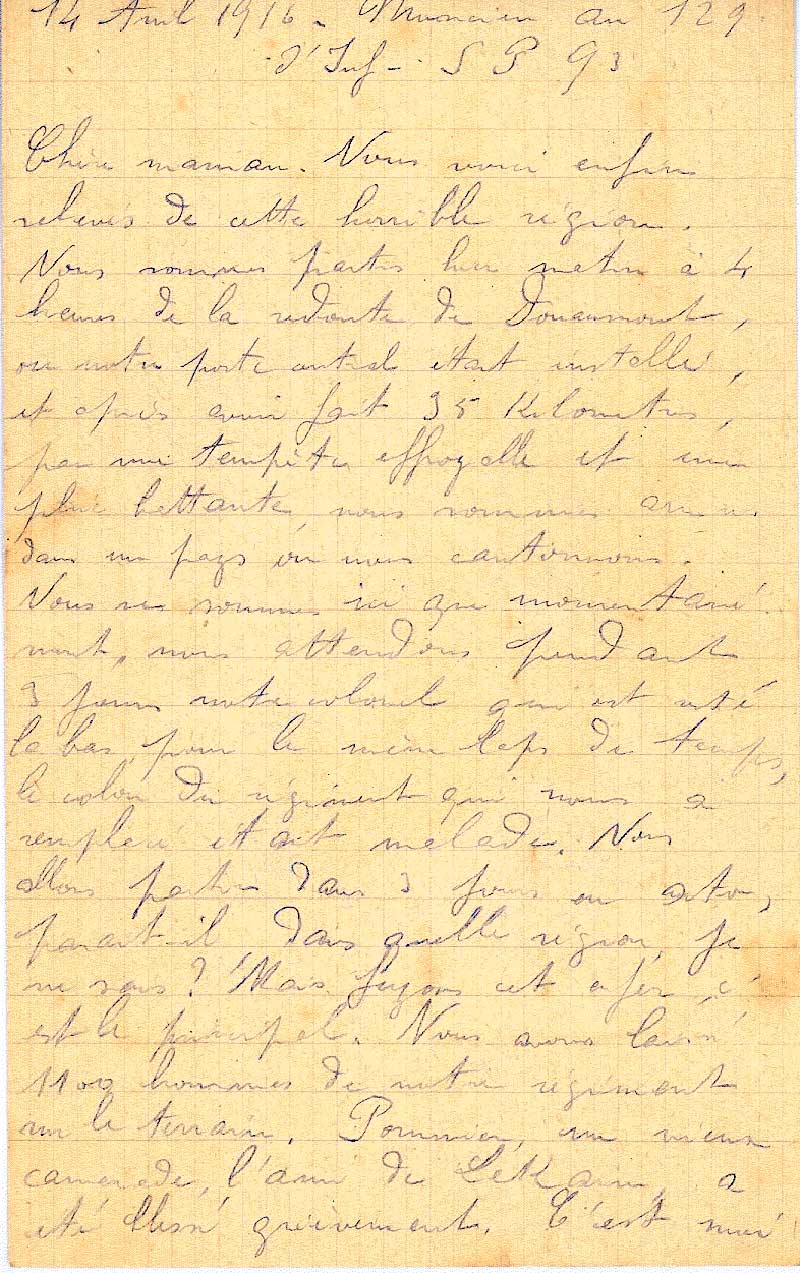 14 Avril 1916. Musicien au 129
d'Inf - S P 93
Chère maman. Nous voici enfin
relevés de cette horrible région.
Nous sommes partis hier matin à 4
heures de la redoute de Douaumont,
ou notre poste central était installé,
et après avoir fait 35 Kilomètres,
par une tempête effroyable et une
pluie battante, nous sommes arrivés
dans un pays où nous cantonnons.
Nous ne sommes ici que momentané
ment, nous attendons pendant
3 jours notre colonel qui est resté
là bas, pour le même laps de temps,
le colon du régiment qui nous a
remplacé était malade. Nous
allons partir dans 3 jours en auto,
parait-il, dans quelle région, je
ne sais ? Mais fuyons cet enfer, c'
est le principal. Nous avons laissé
1100 hommes de notre régiment
sur le terrain. Pommier, un vieux
camarade, l'ami de LeKain, a
été blessé grièvement. C'est